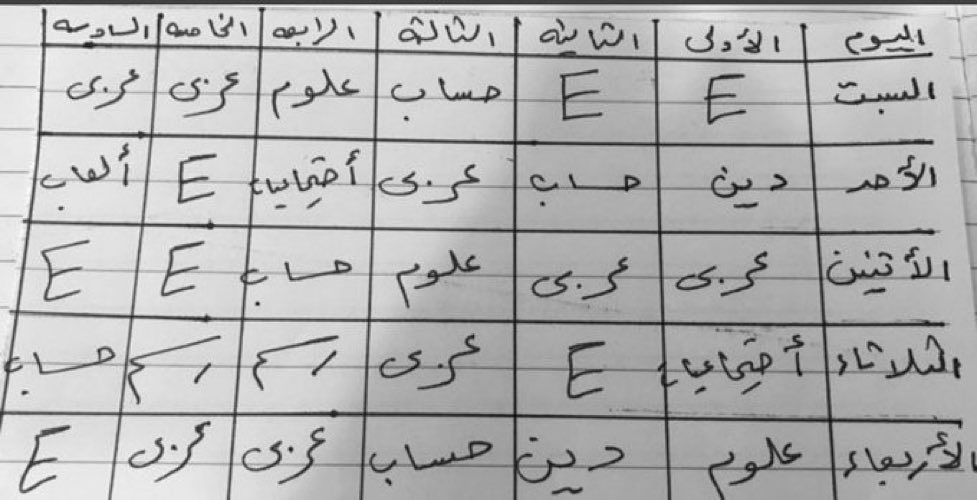 اليوم الأولى الثانية الثالثة الرابعة الخامسة السادسة
السبت E E حساب علوم عربى عربى
الأحد دين حساب عربى أجتماعيات E ألعاب
الأثنين عربى عربى علوم حساب E E
الثلاثاء أجتماعيات E عربى رسم رسم حساب
الأربعاء علوم دين حساب عربى عربى E